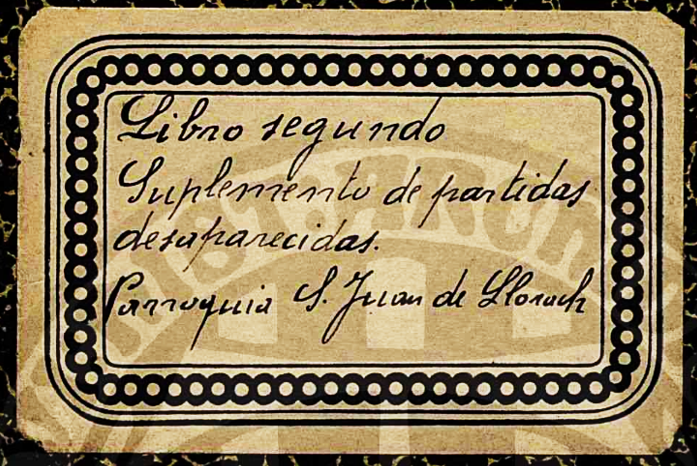 Libro segundo
Suplemento de partidas
desaparecidas.
Parroquia S. Juan de Llorach